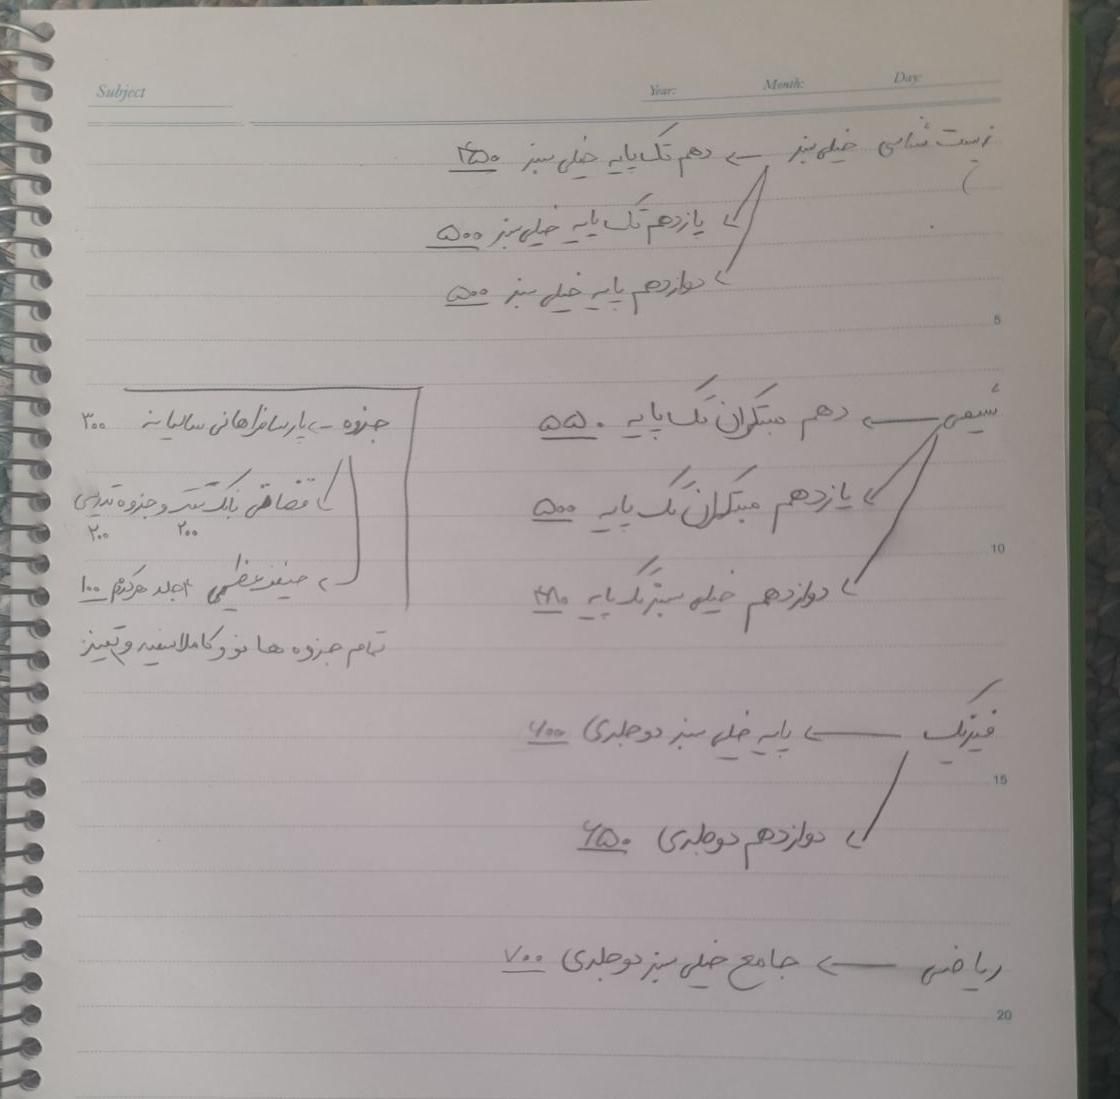 Subject
Year: Month: Day:
زیست شناسی خیلی سبز ← دهم تک پایه خیلی سبز ۴۵۰
یازدهم تک پایه خیلی سبز ۵۰۰
دوازدهم پایه خیلی سبز ۵۰۰
5
شیمی ← دهم مبتکران تک پایه ۵۵۰
یازدهم مبتکران تک پایه ۵۰۰
10
دوازدهم خیلی سبز تک پایه ۴۸۰
جزوه ← پارسا فراهانی سالیانه ۳۰۰
قضاقی بانک تست و جزوه تدریس
۲۰۰ ۲۰۰
عظیمی ۴ جلد هرکدوم ۱۰۰
تمام جزوه ها نو و کاملا سفید و تمیز
فیزیک ← پایه خیلی سبز دوجلدی ۶۰۰
15
دوازدهم دوجلدی ۶۵۰
ریاضی ← جامع خیلی سبز دوجلدی ۷۰۰
20